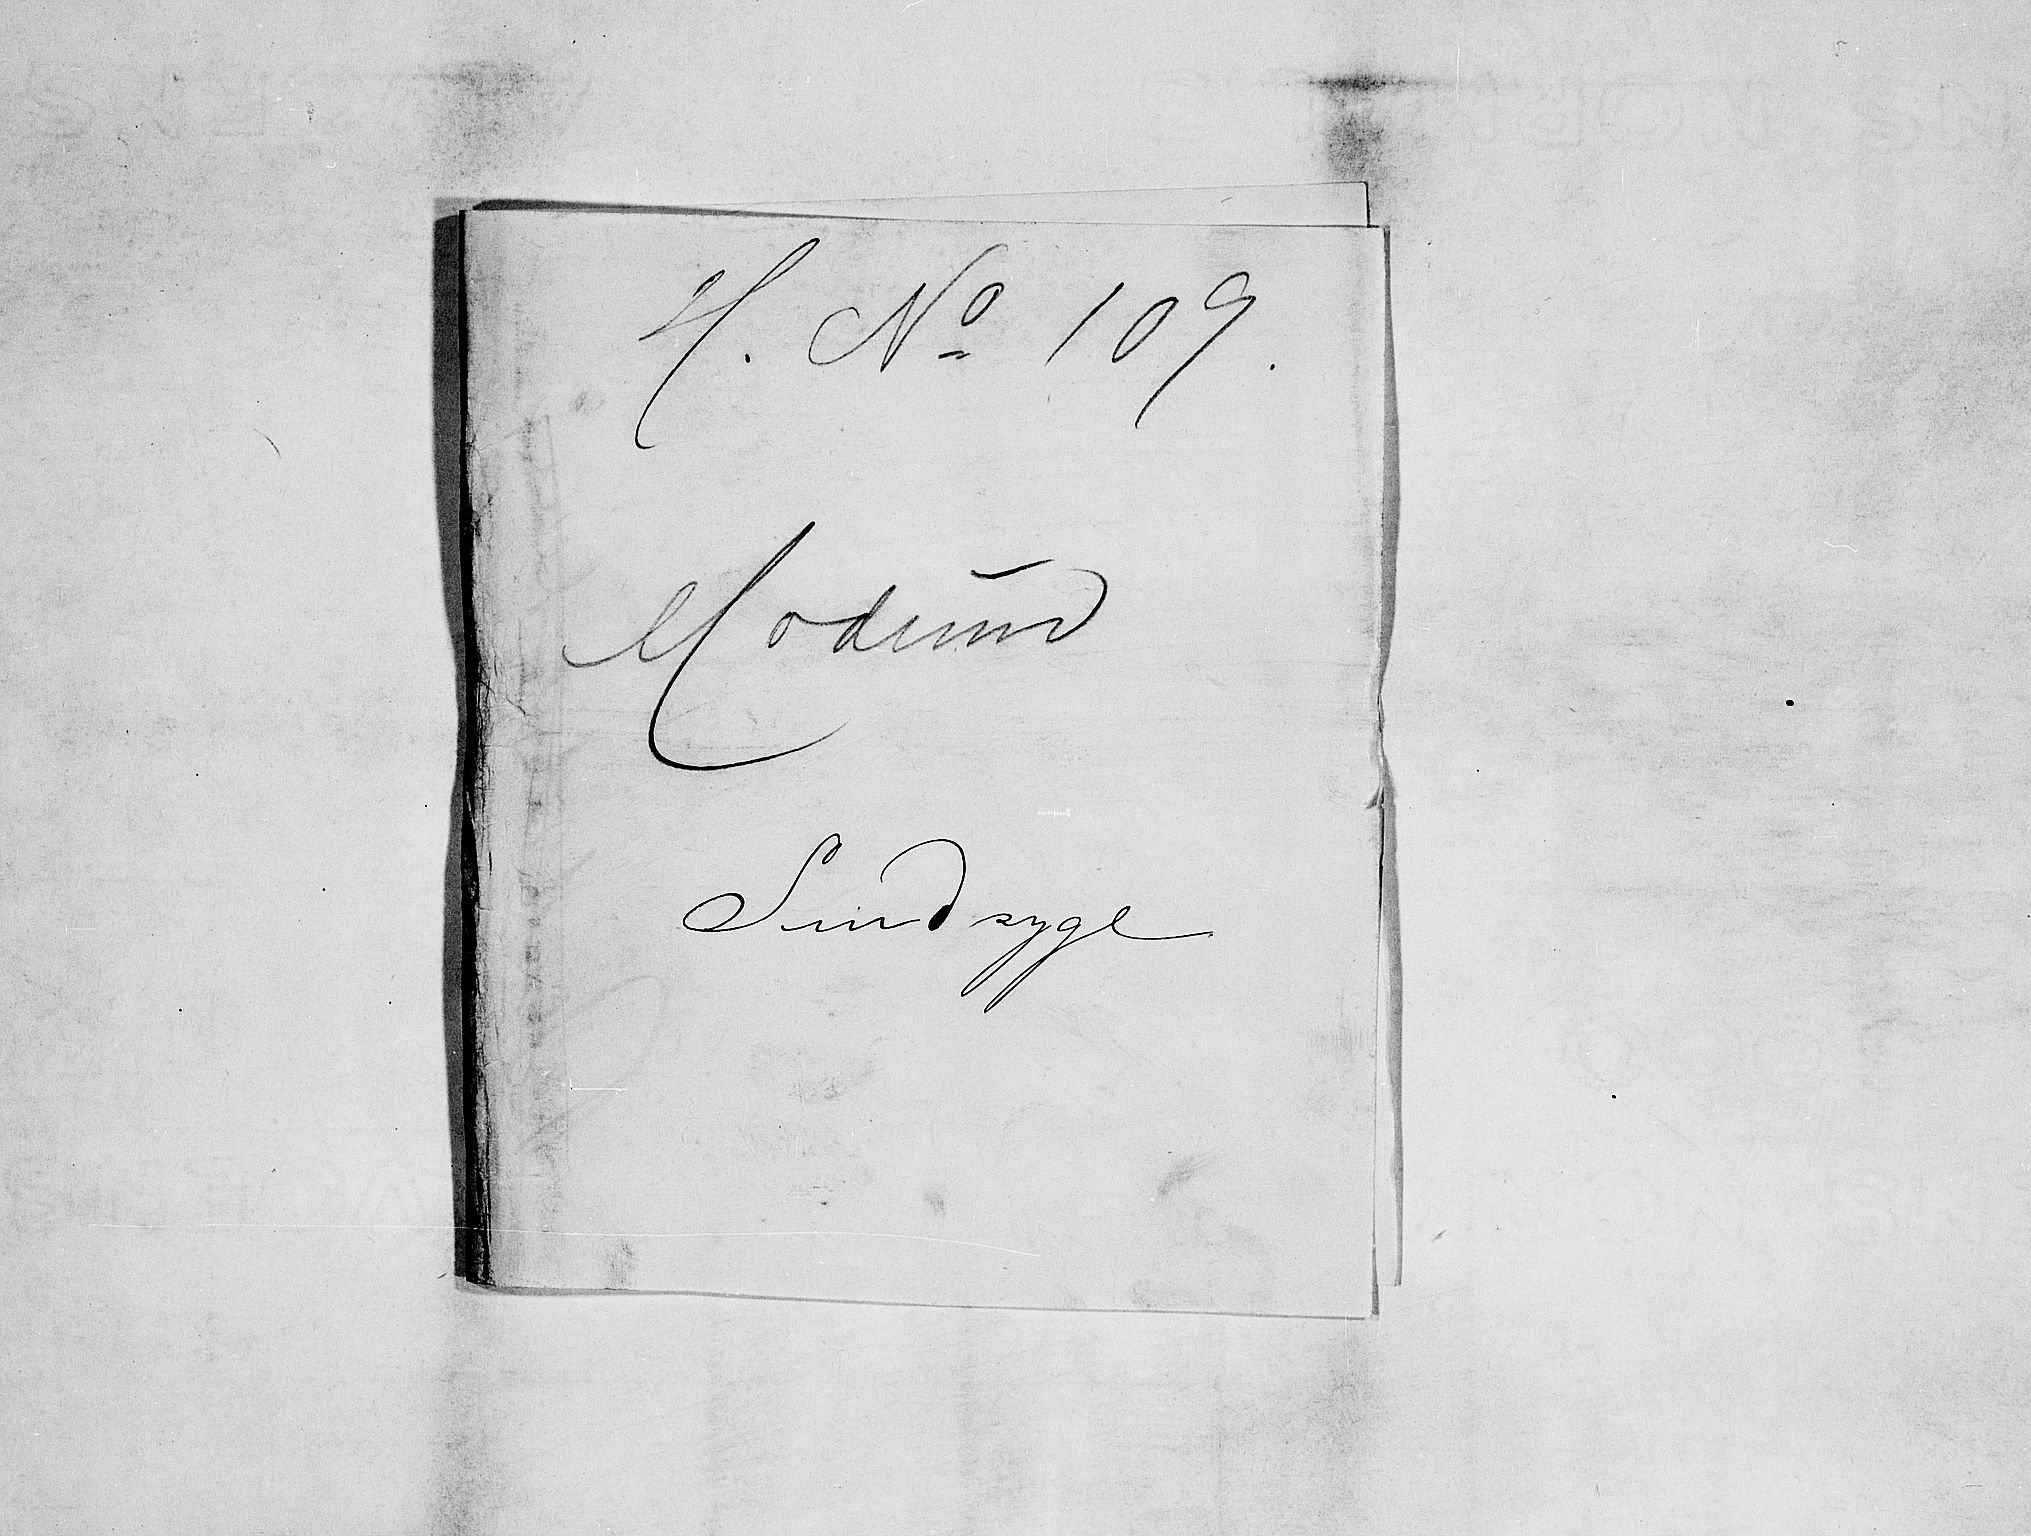 H. Nº 109.
Modum
Sindsyge